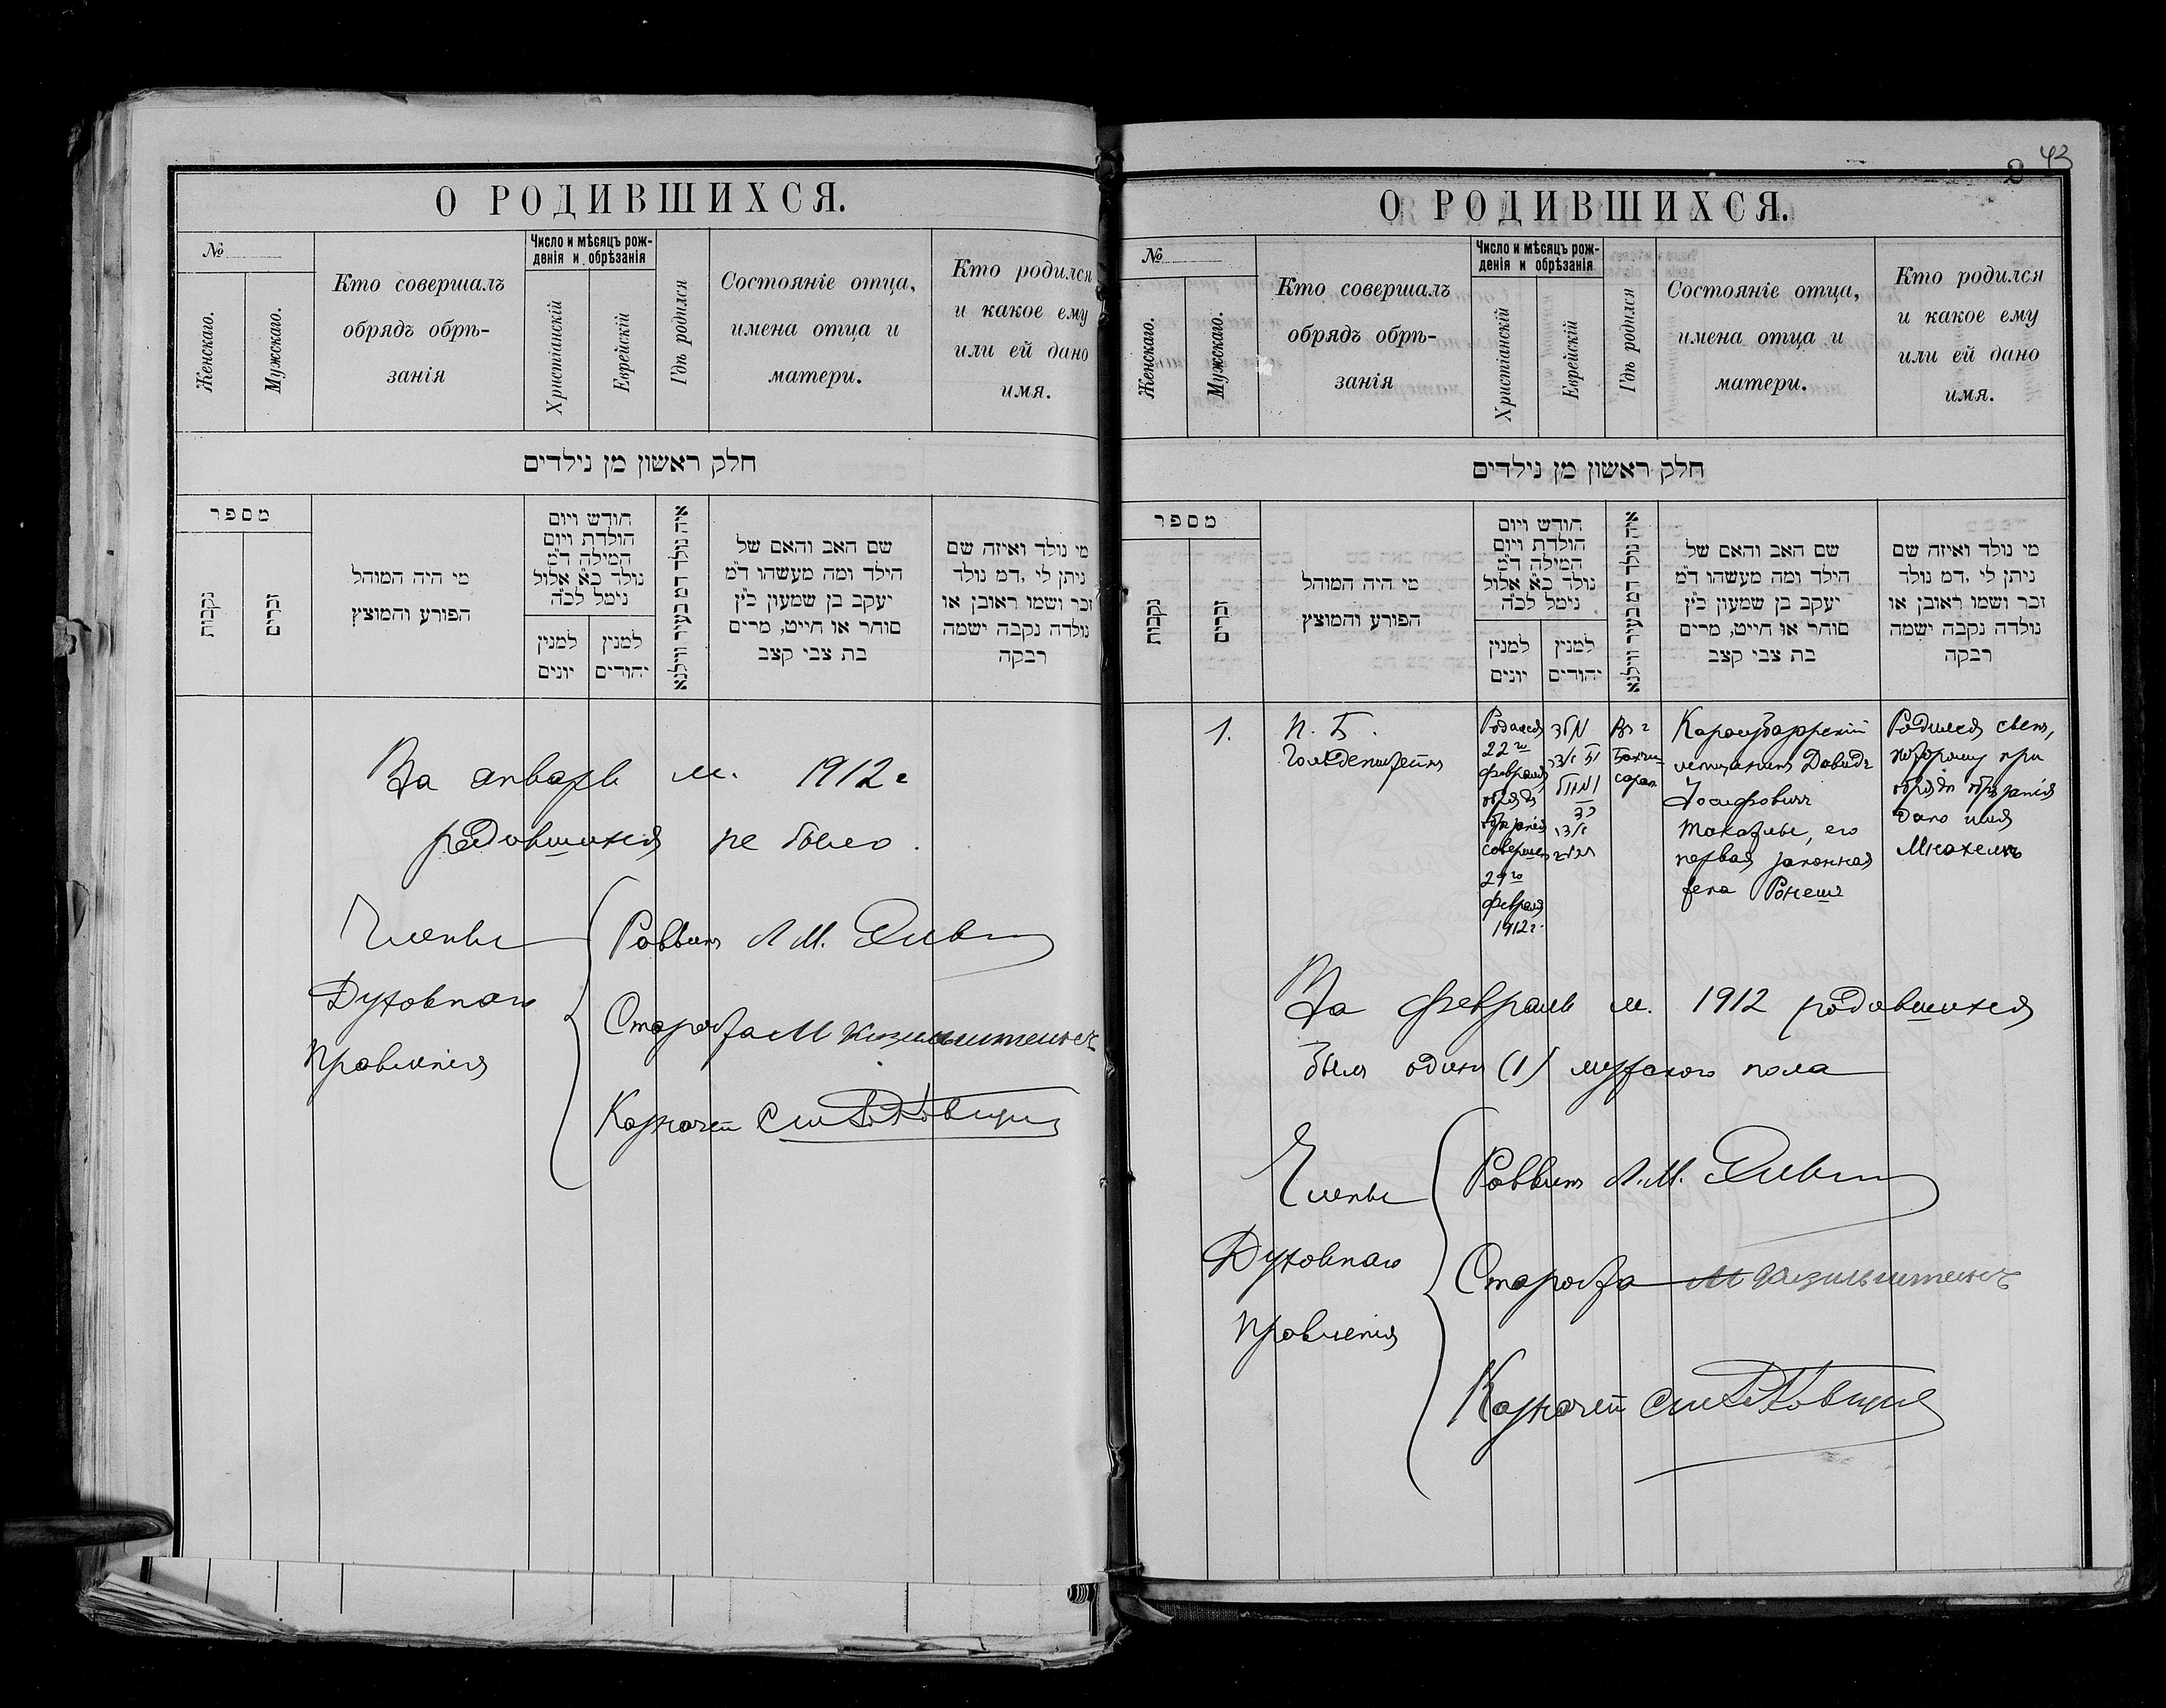 О РОДИВШИХСЯ.
№
Женскаго.
Мужскаго.
Кто совершалъ
обрядъ обрѣ-
занія
Число и мѣсяцъ рож-
денія и обрѣзанія
Христіанскій
Еврейскій
Гдѣ родился
Состояніе отца,
имена отца и
матери.
Кто родился
и какое ему
или ей дано
имя.
חלק ראשון מן נילדים
מספר
נקבות
זכרים
מי היה המוהל
הפורע והמוצץ
חודש ויום
הולדת ויום
המילה ד״מ
נולד כ״א אלול
נימל לכ״ה
למנין
יונים
למנין
יהודים
איה נולד דמ בעיר ווילנא
שם האב והאם של
הילד ומה מעשהו ד״מ
יעקב בן שמעון כ״ץ
סוחר או חייט, מרים
בת צבי קצב
מי נולד ואיזה שם
ניתן לי ,דמ נולד
זכר ושמו ראובן או
נולדה נקבה ישמה
רבקה
За январь м. 1912 г
родившихся не было.
Члены
Духовнаго
Правленія
Раввинъ Л М.
Староста М
Казначей
43
2
О РОДИВШИХСЯ.
№
Женскаго.
Мужскаго.
Кто совершалъ
обрядъ обрѣ-
занія
Число и мѣсяцъ рож-
денія и обрѣзанія
Христіанскій
Еврейскій
Гдѣ родился
Состояніе отца,
имена отца и
матери.
Кто родился
и какое ему
или ей дано
имя.
חלק ראשון מן נילדים
מספר
נקבות
זכרים
מי היה המוהל
הפורע והמוצץ
חודש ויום
הולדת ויום
המילה ד״מ
נולד כ״א אלול
נימל לכ״ה
למנין
יונים
למנין
יהודים
איה נולד דמ בעיר ווילנא
שם האב והאם של
הילד ומה מעשהו ד״מ
יעקב בן שמעון כ״ץ
סוחר או חייט, מרים
בת צבי קצב
מי נולד ואיזה שם
ניתן לי ,דמ נולד
זכר ושמו ראובן או
נולדה נקבה ישמה
רבקה
1.
П. Б.
Гольденштейнъ
Родился
22 го
февраля
обрядъ
обрѣзанія
совершен
29 го
февраля
1912 г.
Въ г
Бахчи
сараѣ
Карасубазарскій
мѣщанинъ Давидъ
Іосифовичъ
Токатлы, его
первая законная
жена Рахель
Родился сынъ,
которому при
обрядѣ обрѣзанія
дано имя
За февраль м. 1912 родившихся
былъ одинъ (1) мужскаго пола
Члены
Духовнаго
Правленія
Раввинъ Л. М.
Староста М
Казначей